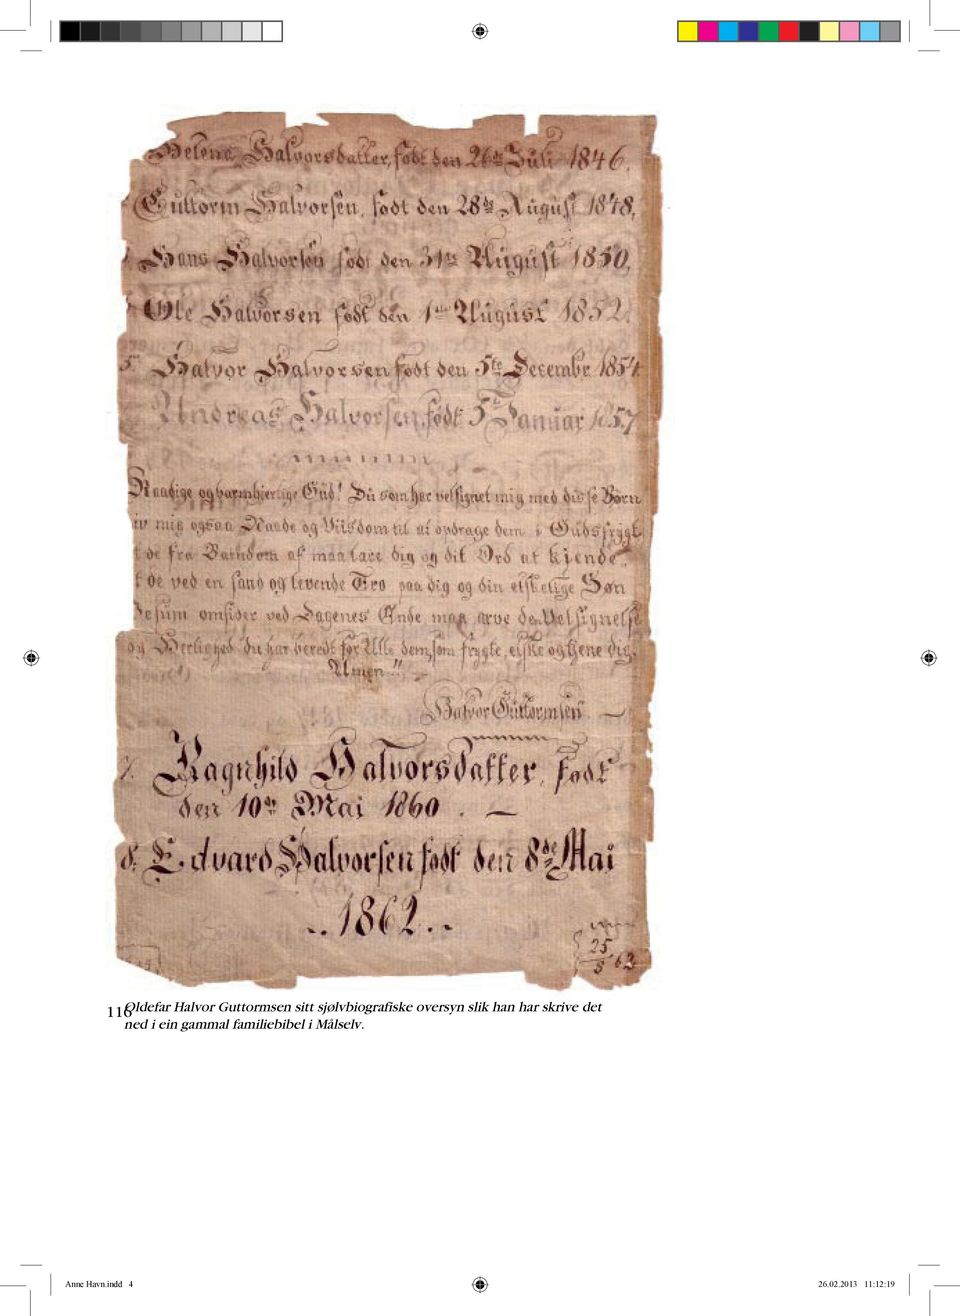 Helena Halvorsdatter, født den 26de Juli 1846.
Guttorm Halvorsen, født den 28de August 1848,
Hans Halvorsen født den 31te August 1850,
Ole Halvorsen født den 1ste August 1852.
5. Halvor Halvorsen født den 5te Decembr. 1854.
Andreas Halvorsen, født 5te Januar, 1857
Naadige og barmhjertige Gud! Du som har velsignet mig med disse Børn
iv mig ogsaa Naade og Viisdom til at opdrage dem i Gudsfrygt
t de fra Barndom af maa lære dig og dit Ord at kjende,
t de ved en sand og levende Tro paa dig og din elskelige Søn
Jesum omsider ved Dagenes Ende maa arve den Velsignelse
og Herlighed du har beredt for Alle dem, som frygte, elske og tjene dig.
Amen"
Halvor Guttormsen
7. Ragnhild Halvorsdatter, født
den 10de Mai 1860. —
8. Edvard Halvorsen født den 8de Mai
1862.
25
5 62
116
Oldefar Halvor Guttormsen sitt sjølvbiografiske oversyn slik han har skrive det
ned i ein gammal familiebibel i Målselv.
Anne Havn.indd 4
26.02.2013 11:12:19